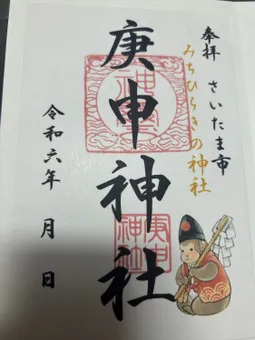 奉拝 さいたま市
みちひらきの神社
庚申神社
令和六年 月 日
庚申
神社